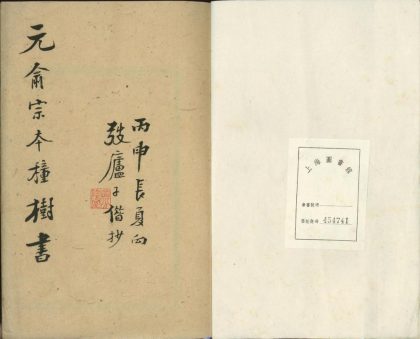 元俞宗本種樹書
丙申長夏向
弢廬子偕抄
上海圖書館
登記號碼 454741